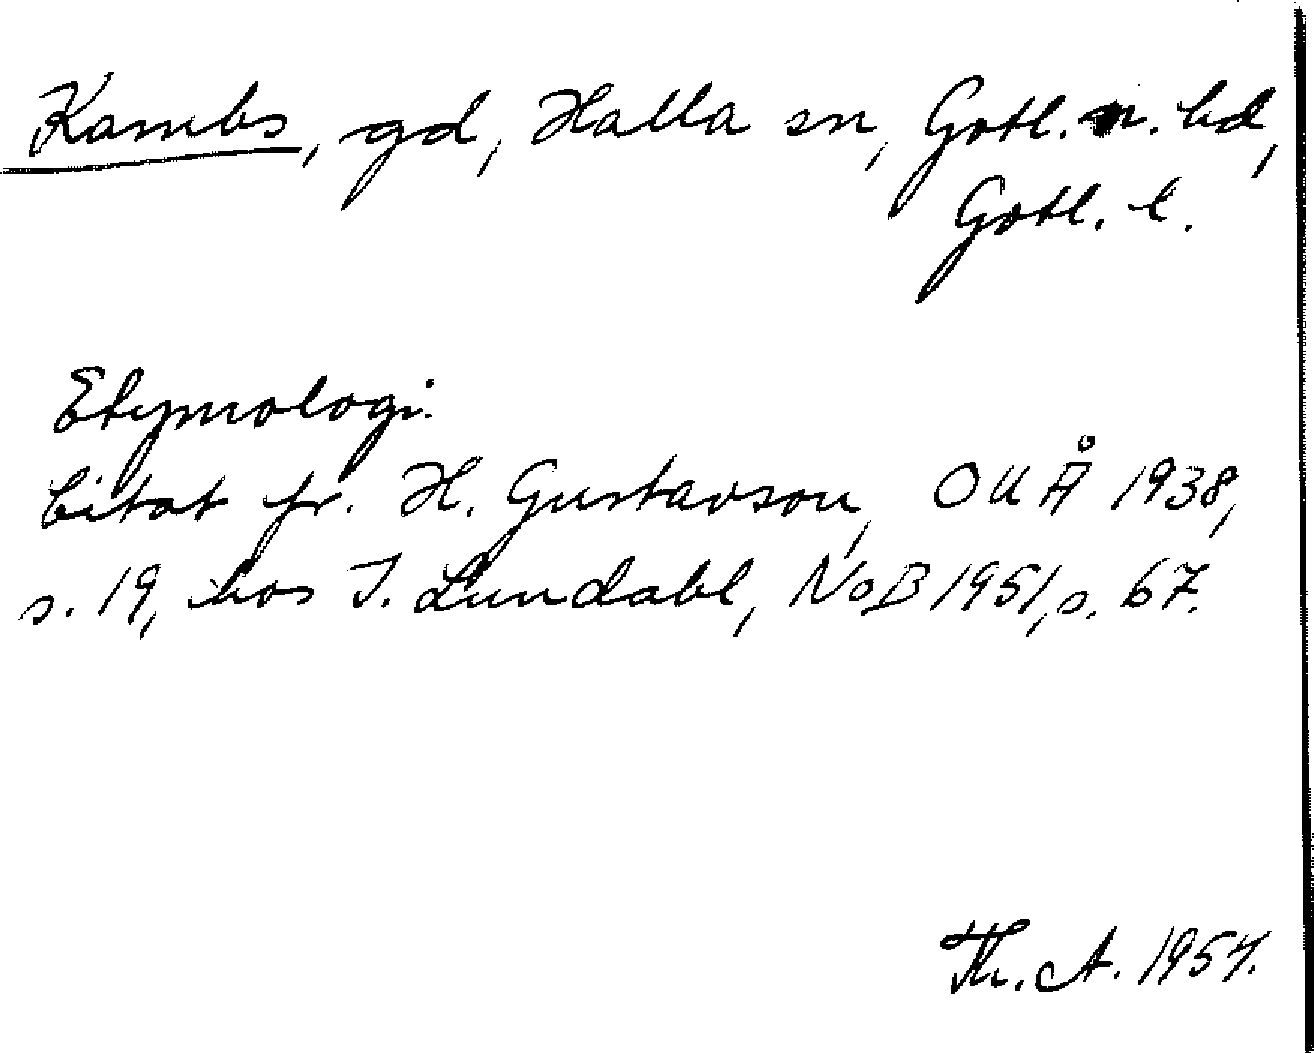 Kambs, gd, Halla sn, Gotl. n. hd,
Gotl. l.
Etymologi.
Citat fr. H. Gustavson, OUÅ 1938,
s. 19, hos I. Lundahl, NoB 1951, s. 67.
Th. A. 1954.